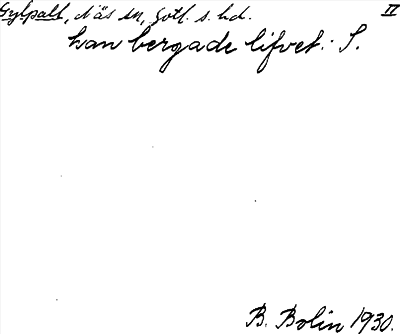 Gylpalt, näs sn, Gotl. s. hd. II
han bergade lifvet. S.
B. Bolin 1930.